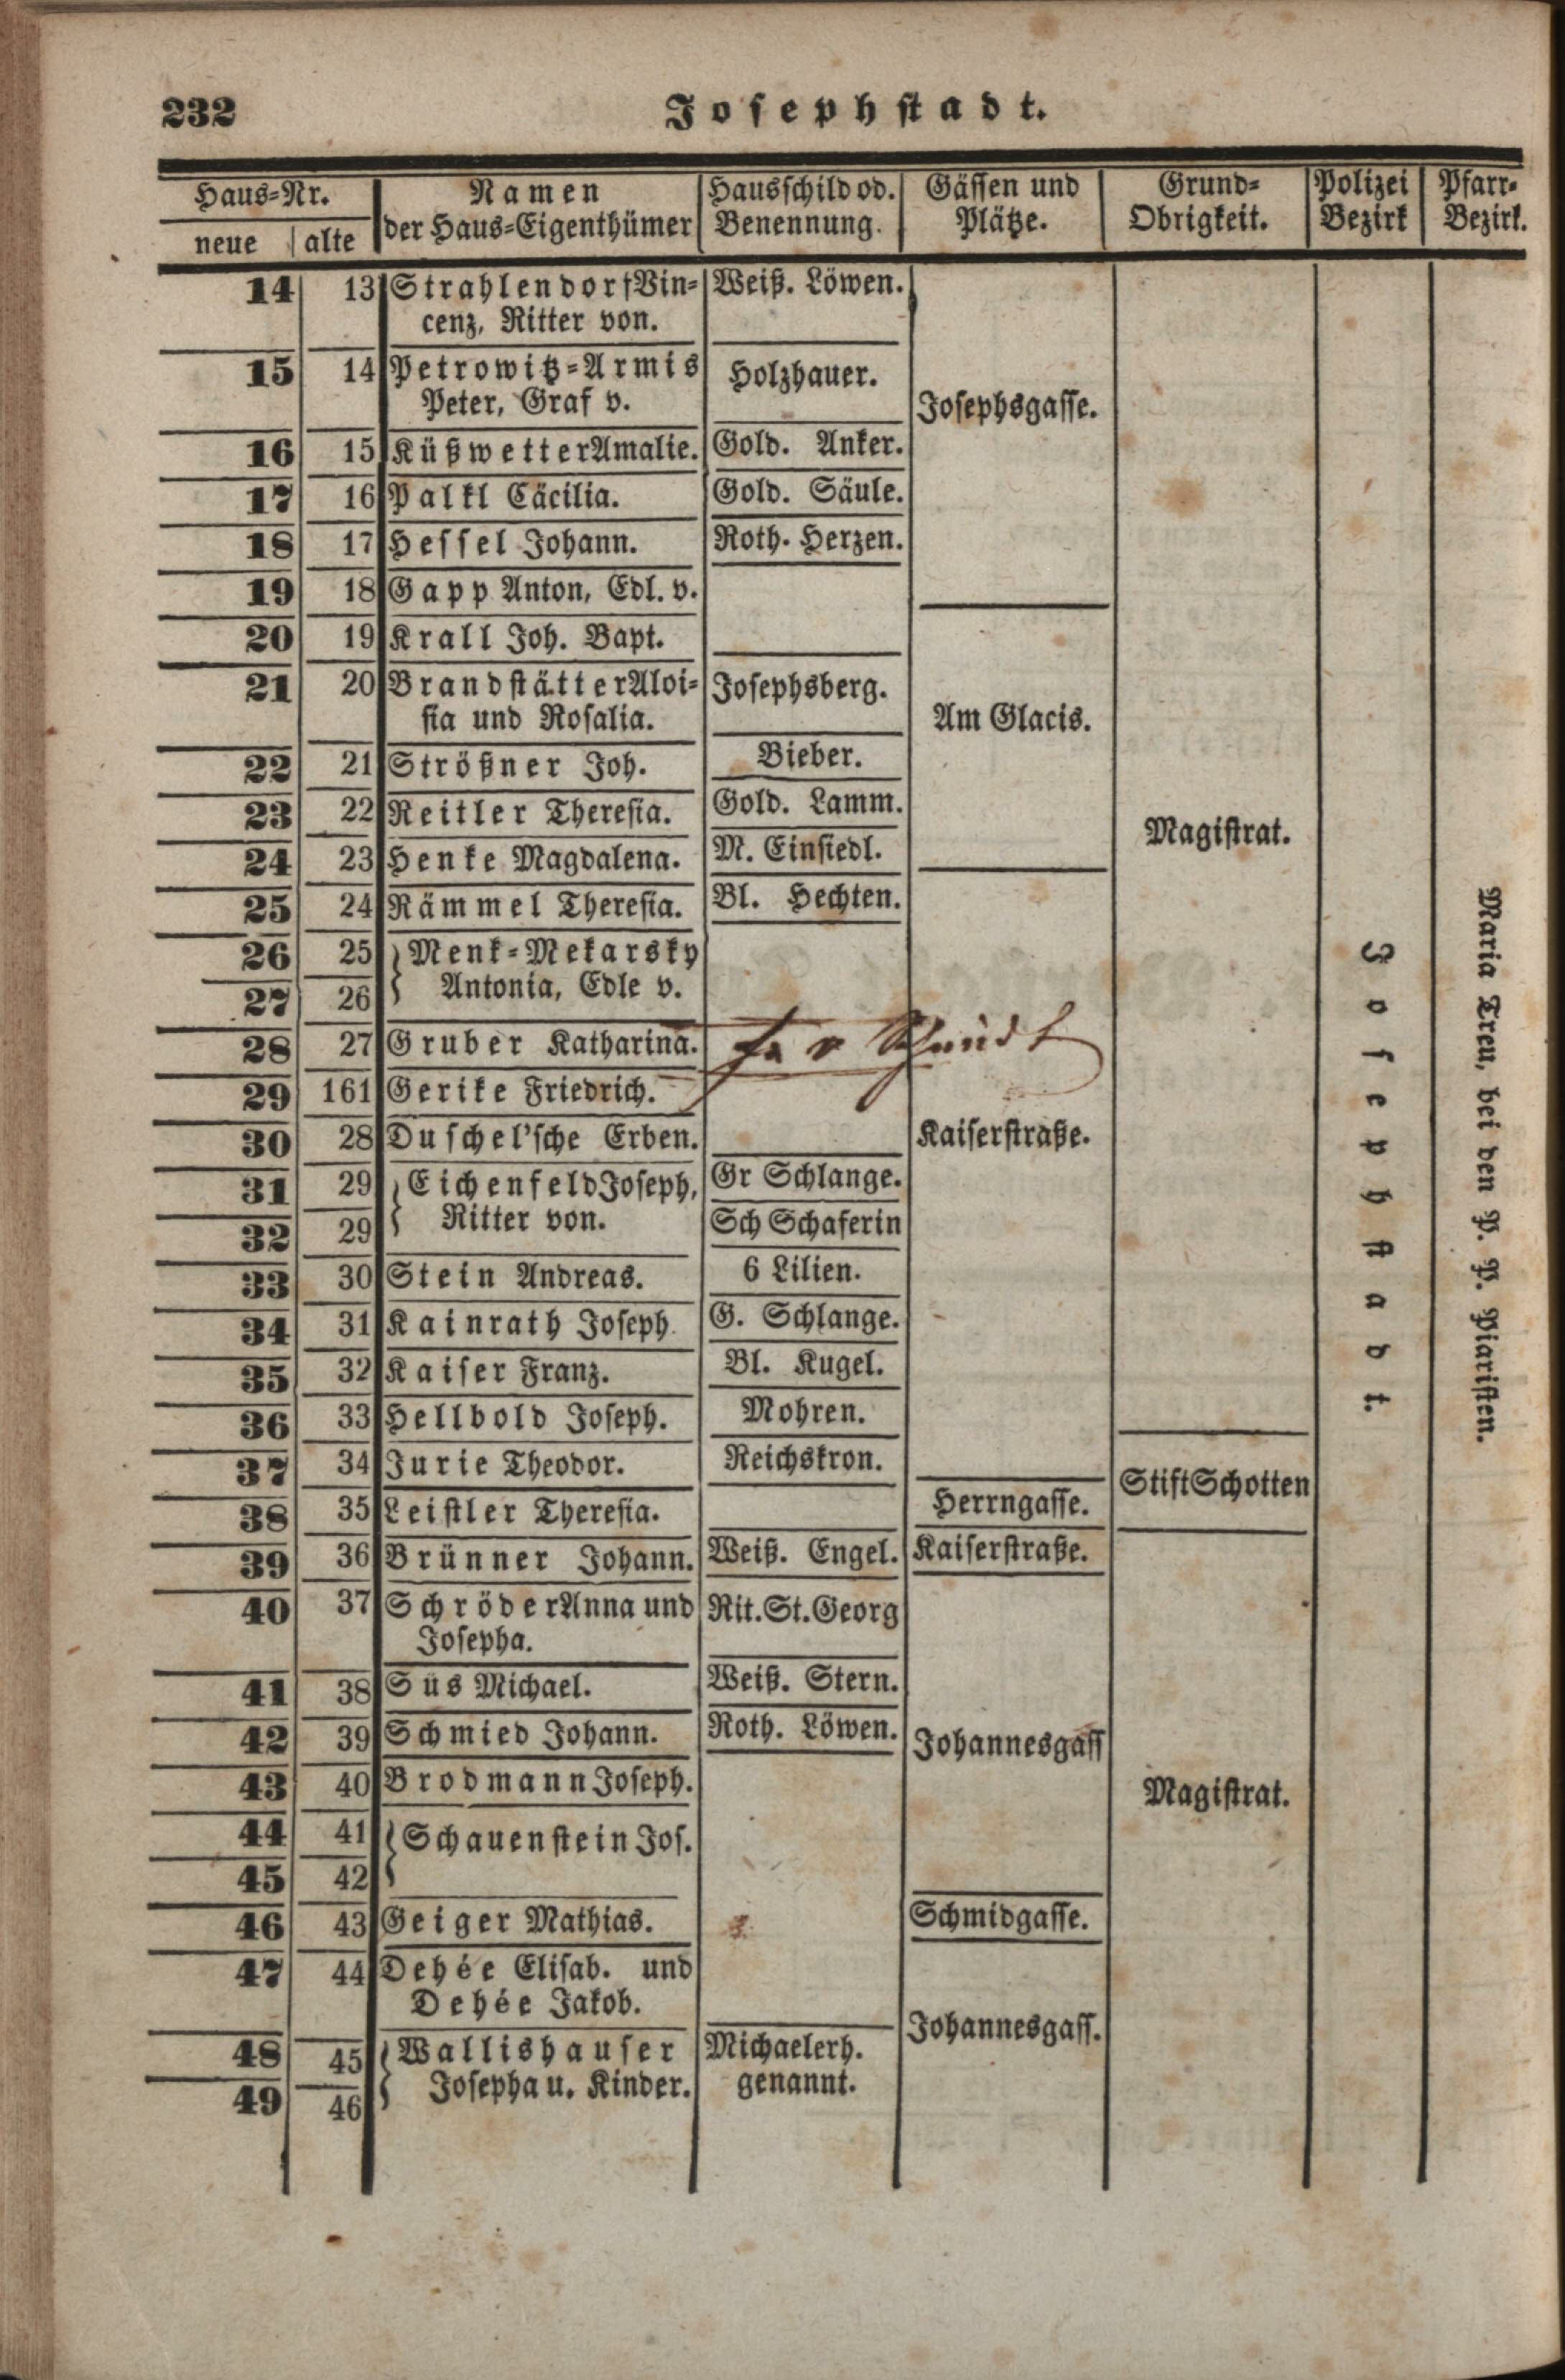 232
Josephstadt.
Haus-Nr.
neue alte
Namen
der Haus-Eigenthümer
Hausschild od.
Benennung.
Gässen und
Plätze.
Grund-
Obrigkeit.
Polizei
Bezirk
Pfarr-
Bezirk.
14 13 Strahlendorf Vin- Weiß. Löwen.
cenz, Ritter von.
15 14 Petrowitz-Armis Holzhauer.
Peter, Graf v.
Josephsgasse.
16 15 Küßwetter Amalie. Gold. Anker.
17 16 Palkl Cäcilia. Gold. Säule.
18 17 Hessel Johann. Roth. Herzen.
19 18 Gapp Anton, Edl. v.
20 19 Krall Joh. Bapt.
21 20 Brandstätter Aloi- Josephsberg.
sia und Rosalia.
Am Glacis.
22 21 Strößner Joh. Bieber.
23 22 Reitler Theresia. Gold. Lamm.
Magistrat.
24 23 Henke Magdalena. M. Einsiedl.
25 24 Rämmel Theresia. Bl. Hechten.
26 25 Menk-Mekarsky
27 26 Antonia, Edle v.
28 27 Gruber Katharina.
v Schmidt
29 161 Gerike Friedrich.
30 28 Duschel'sche Erben. Kaiserstraße.
31 29 Eichenfeld Joseph, Gr Schlange.
32 29 Ritter von. Sch Schaferin
33 30 Stein Andreas. 6 Lilien.
34 31 Kainrath Joseph. G. Schlange.
35 32 Kaiser Franz. Bl. Kugel.
36 33 Hellbold Joseph. Mohren.
37 34 Jurie Theodor. Reichskron.
Stift Schotten
38 35 Leistler Theresia. Herrngasse.
39 36 Brünner Johann. Weiß. Engel. Kaiserstraße.
40 37 Schröder Anna und Rit. St. Georg
Josepha.
41 38 Süs Michael. Weiß. Stern.
42 39 Schmied Johann. Roth. Löwen. Johannesgass
43 40 Brodmann Joseph.
Magistrat.
44 41 Schauenstein Jos.
45 42
46 43 Geiger Mathias. Schmidgasse.
47 44 Dehée Elisab. und
Dehée Jakob.
Johannesgass.
48 45 Wallishauser Michaelerh.
49 46 Josepha u. Kinder. genannt.
Josephstadt.
Maria Treu, bei den P. P. Piaristen.